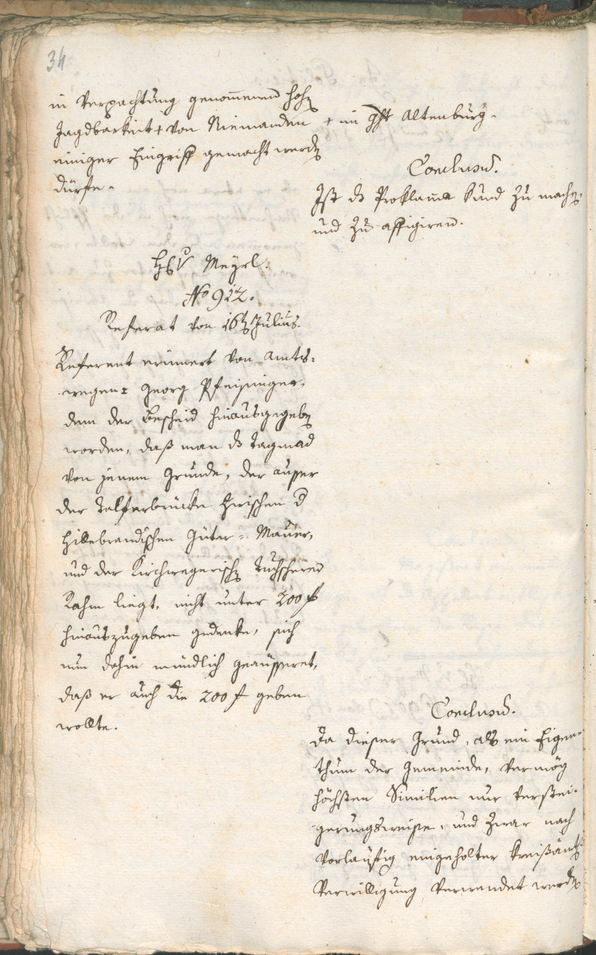 34
in Verpachtung genommenen hohen
Jagdbarkeit + von Niemanden
einiger Eingriff gemacht werden
dürfe.
+ im Ghft Altenburg.
Conclusum.
Ist das Proklama kund zu machen
und zu affigiren.
Hs v Mayrl:
No 922.
Referat von 16ten Julius.
Referent erinnert von Amts-
wegen: Georg Pfeisinger,
dem der Bescheid hinausgegeben
worden, daß man das Tagmad
von jenem Grunde, der ausser
der Talferbrücke zwischen der
Hillebrandischen Güter-Mauer,
und der Kirchnerischen Tuchscherer
Rahm liegt, nicht unter 200 f
hinauszugeben gedenke, sich
nun dahin mündlich geäusseret,
daß er auch die 200 f geben
wollte.
Conclusum.
Da dieser Grund, als ein Eigen-
thum der Gemeinde, vermög
höchsten nur verstei-
gerungsweise, und zwar nach
vorläufig eingeholter kreisämtl
Verwilligung verwendet werden